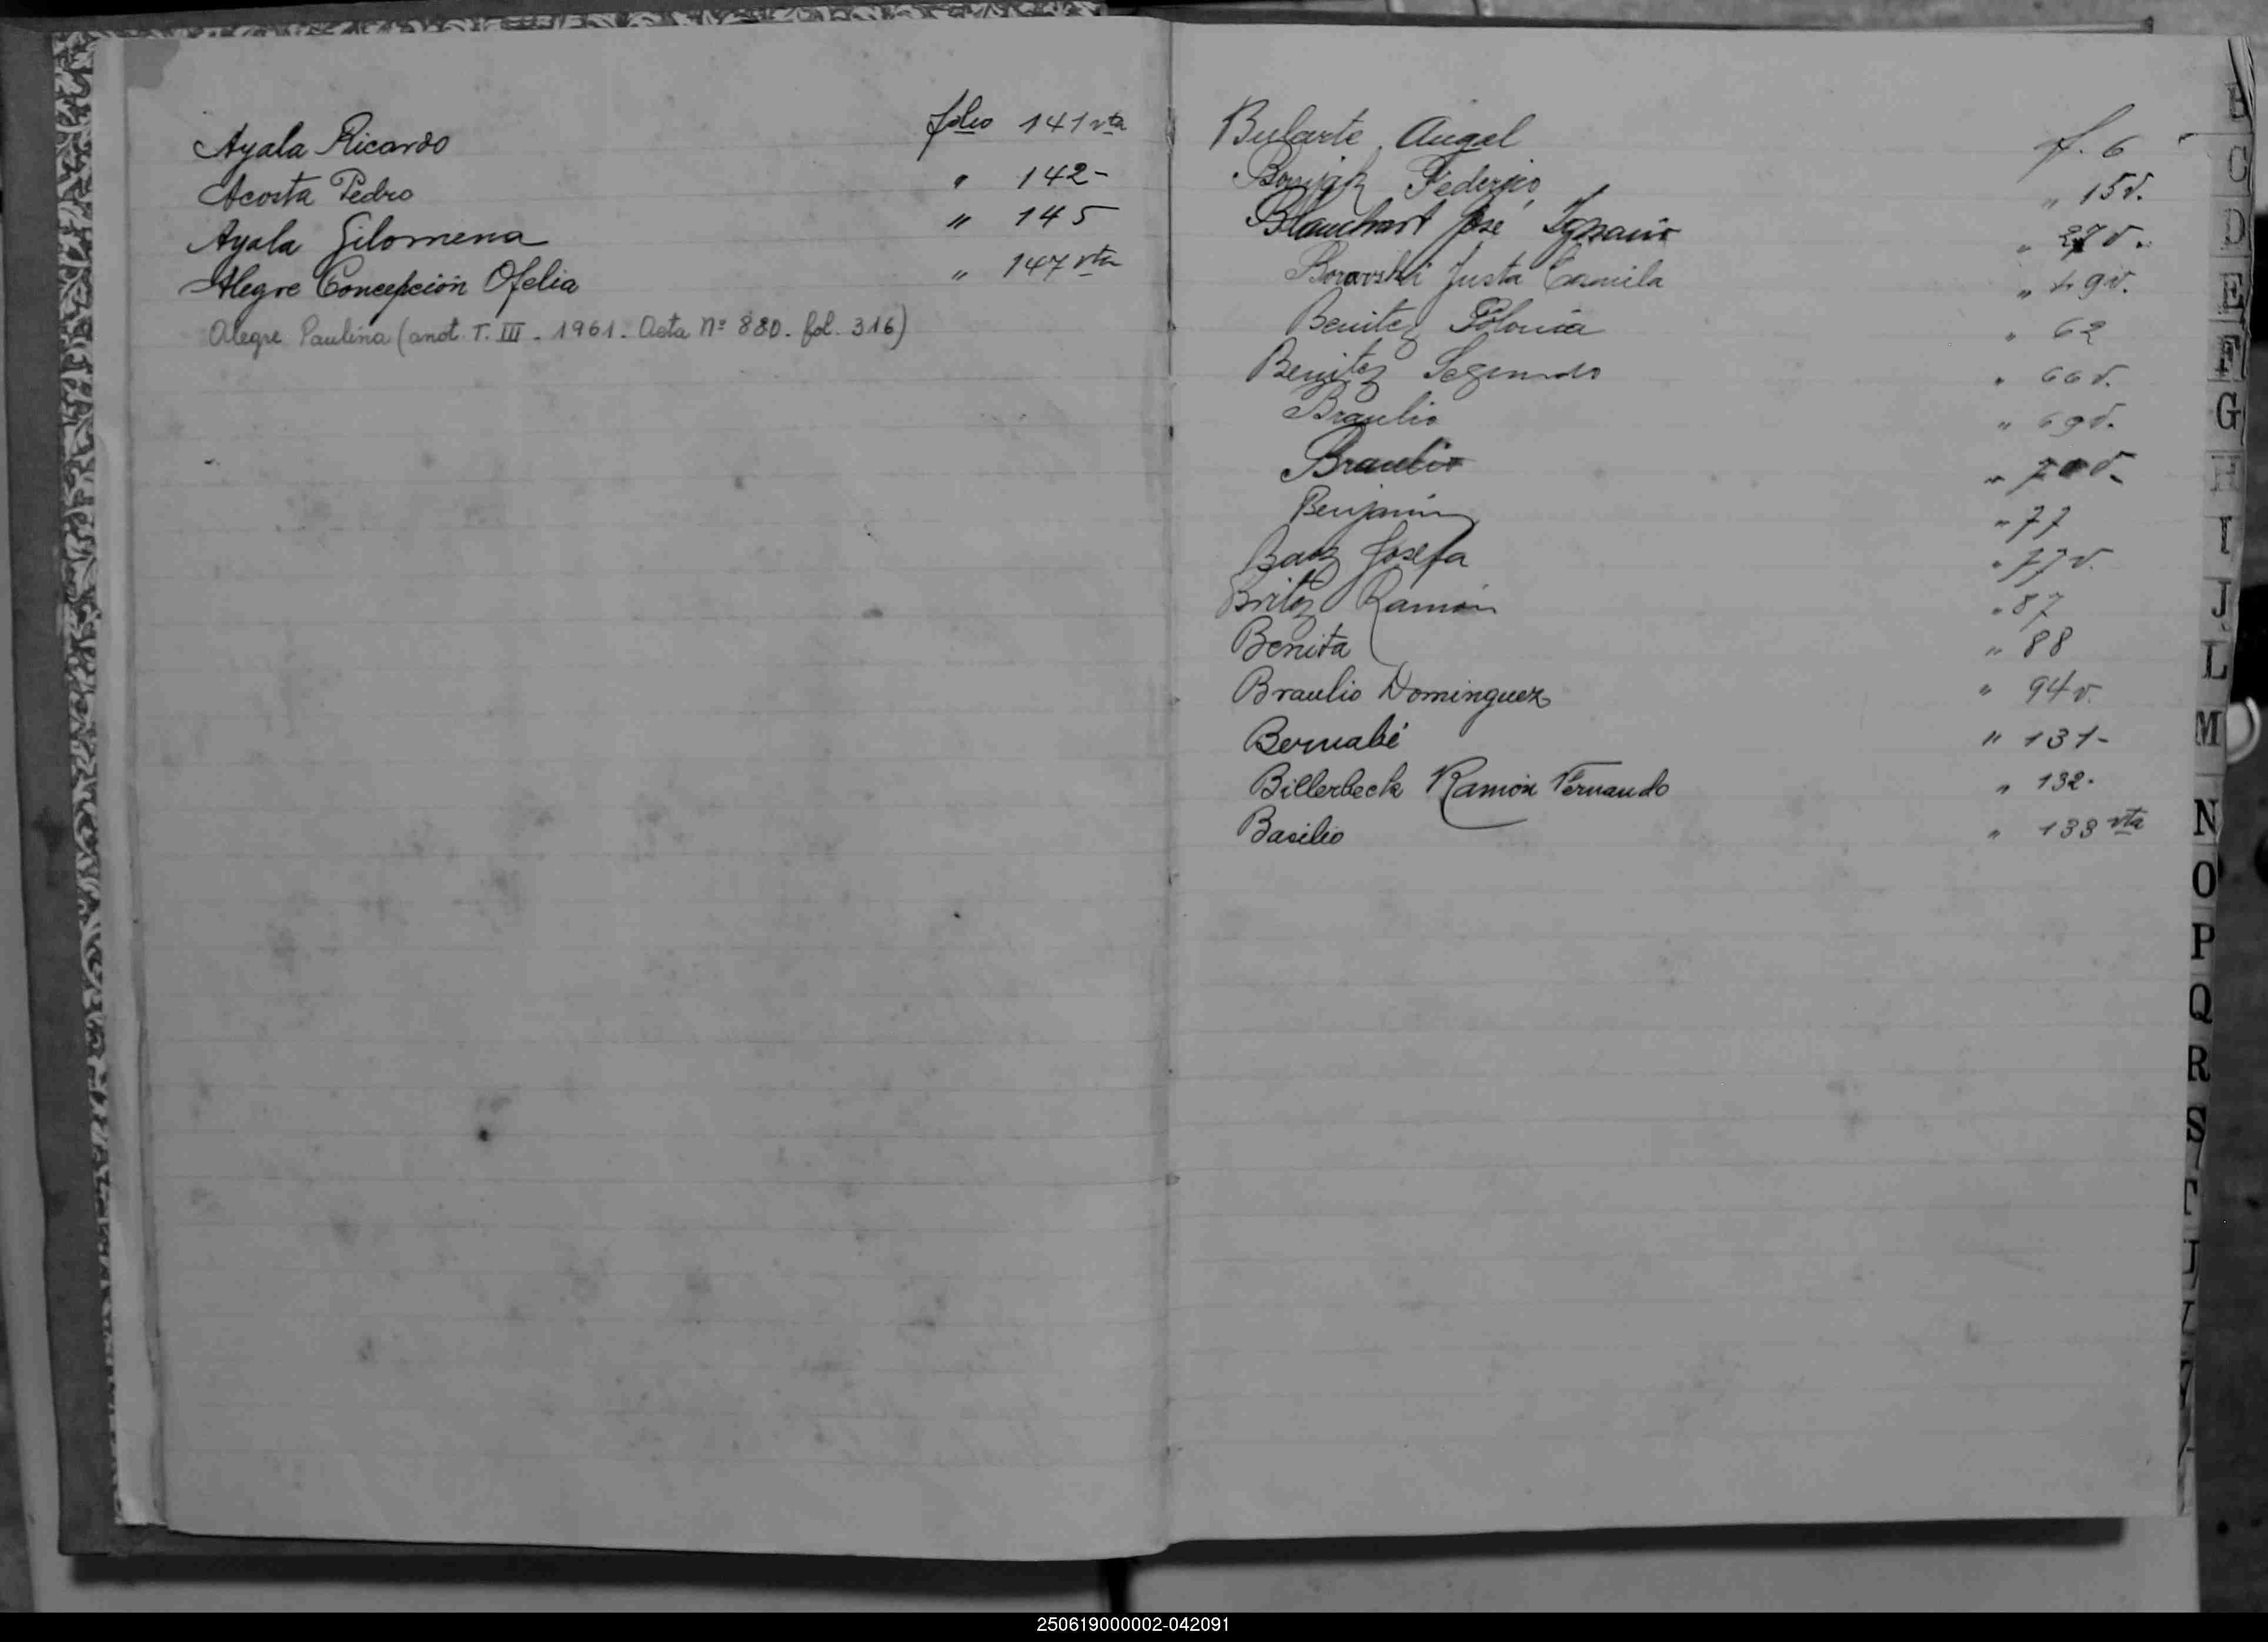 Ayala Ricardo folio 141 vta
Acosta Pedro " 142-
Ayala Filomena " 145
Alegre Concepción Ofelia " 147 vta
Alegre Paulina (anot. T. III - 1961. Acta Nº 880. fol. 316)
Bularte Angel f. 6
Federico " 15 v.
Blanchart José Ignacio " 27 v.
Justa Camila " 49 v.
Benitez Polonia " 62
Benitez Segundo " 66 v.
Braulio " 69 v.
Braulio " 70 v.
Benjamin " 77
Baez Josefa " 77 v.
Britez Ramón " 87
Benita " 88
Braulio Dominguez " 94 v.
Bernabé " 131-
Billerbeck Ramón Fernando " 132-
Basilio " 133 vta
B
C
D
E
F
G
H
I
J
L
M
N
O
P
Q
R
S
T
250619000002-042091